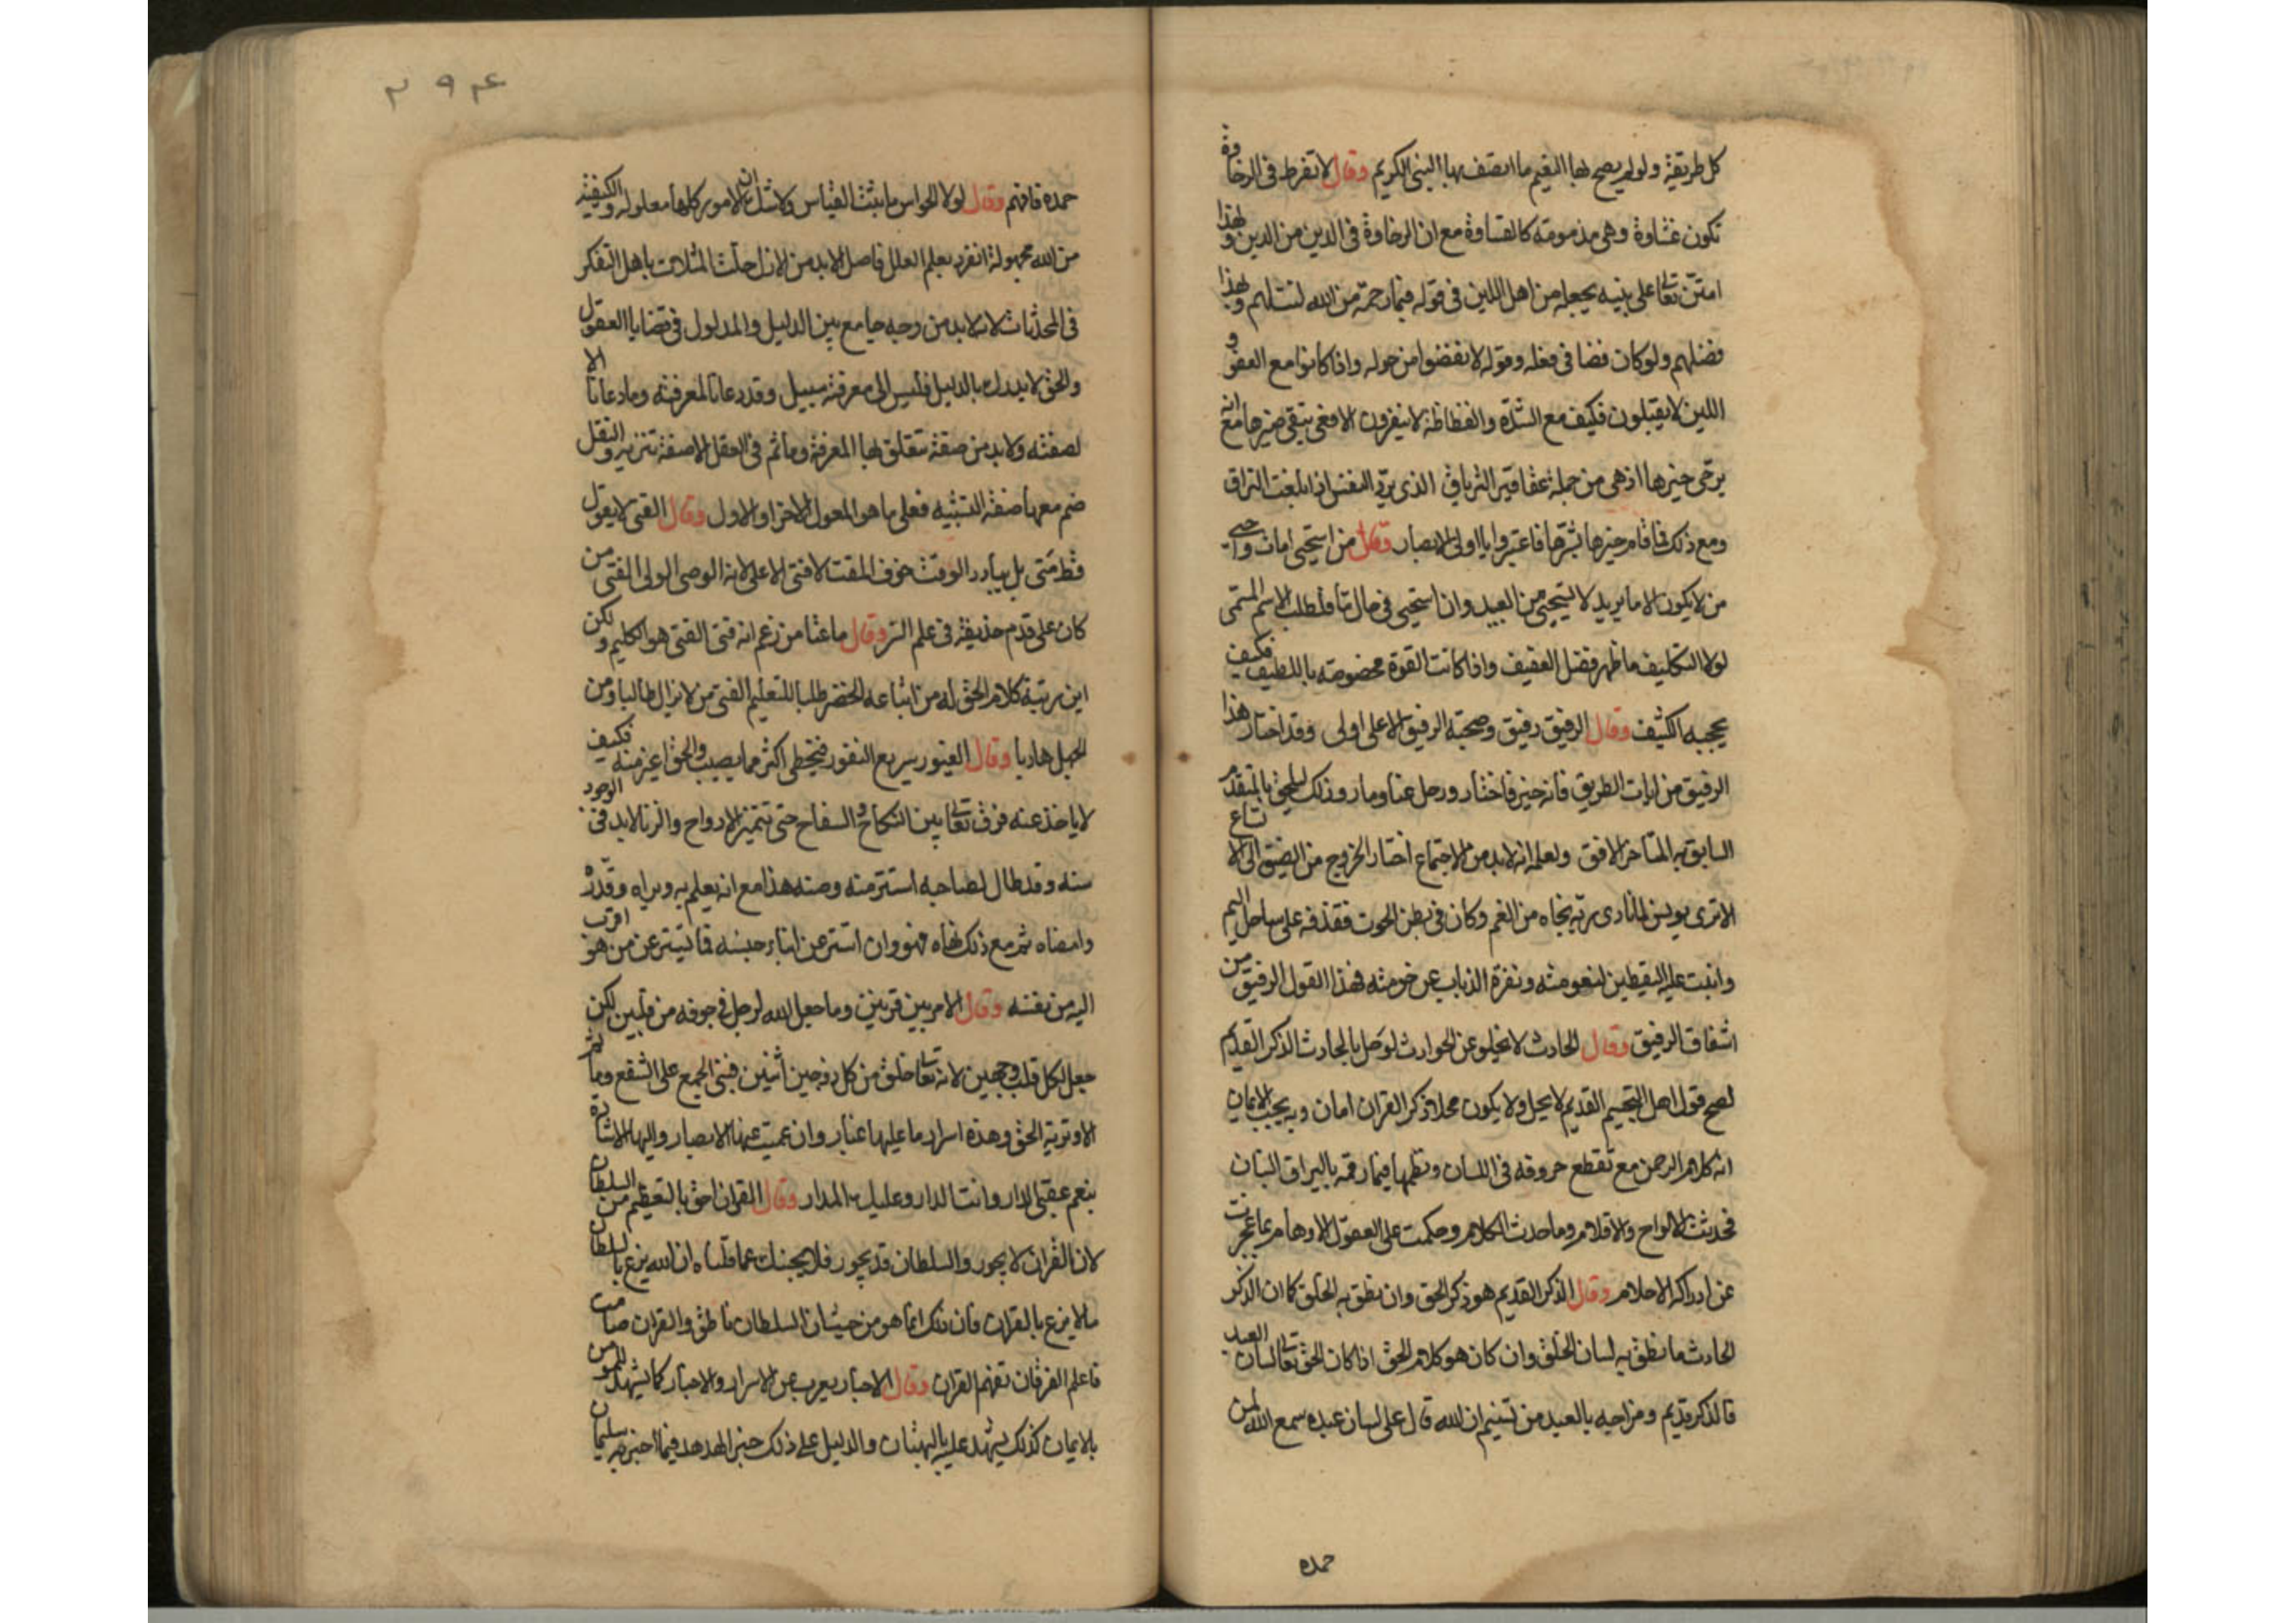 كل طريقة ولو لم يصح لها النعيم ما اتصف بها النبي الكريم وقال لا تفرط في الرخاوة
تكون غشاوة وهي مذمومة كالقساوة مع ان الرخاوة في الدين من الدين ولهذا
امتن تعالى على نبيه بجعله من اهل اللين في قوله فبما رحمة من الله لنت لهم وبهذا
فضلهم ولو كان فضا في فعله وقوله لانفضوا من حوله واذا كانوا مع العفو و
اللين لا يقبلون فكيف مع الشدة والفظاظة لا ينفرون الافعى يتقى ضيرها مع انه
يرجى خيرها اذ هي من جملة عقاقير الترياق الذي يرد النفس اذا بلغت التراق
ومع ذلك فاقام خيرها بشرها فاعتبروا يا اولي الابصار وقال من استحيى امات واحيى
من لا يكون الا ما يريد لا يستحيي من العبيد وان استحيى في حال ما فلطلب الاسم المسمى
لولا التكليف ما ظهر فضل العفيف واذا كانت القوة مخصوصة باللطيف فكيف
يحجبه الكثيف وقال الرفيق رفيق وصحبة الرفيق الاعلى اولى وقد اختار هذا
الرفيق من ابان الطريق فانه خير فاختار ورحل عنا وما روذلك ليلحق بالمتقدم
السابق به المتاخر الافق ولعلمه انه لا بد من الاجتماع اختار الخروج من الضيق الى الاتساع
الا ترى يونس لما نادى ربه نجاه من الغم وكان في بطن الحوت فقذفه على ساحل اليم
وانبت عليه اليقطين لنعومته ونفرة الذباب عن خومته فهذا القول الرفيق من
اشفاق الرفيق وقال الحادث لا يخلو عن الحوادث لو حل بالحادث الذكر القديم
لصح قول اهل التجسيم القديم لا يحل ولا يكون محلا ذكر القران امان وبه يجب الايمان
انه كلام الرحمن مع تقطع حروفه في اللسان ونظمها فيما رقمه باليراق البنان
فحدثت الالواح والاقلام وما حدث الكلام وحكمت على العقول الاوهام بما عجزت
عن ادراكه الاحلام وقال الذكر القديم هو ذكر الحق وان نطق به الخلق كما ان الذكر
الحادث ما نطق به لسان الخلق وان كان هو كلام الحق اذا كان الحق تعالى لسان العبد
فالذكر قديم ومزاجه بالعبد من تسنيم ان الله قال على لسان عبده سمع الله لمن
حمده
٢٩٤
حمده فافهم وقال لولا الحواس ما ثبت القياس ولا شك ان الامور كلها معلولة والكيفية
من الله مجهولة انفرد بعلم العلل فاصل الابد من الازل حلت المثلات باهل التفكر
في المحدثات لانه لا بد من وجه جامع بين الدليل والمدلول في قضايا العقول
والحق لا يدرك بالدليل فليس الى معرفة سبيل وقد دعانا لمعرفته وما دعانا الا
لصفته ولا بد من صفة تتعلق بها المعرفة وما ثم في العقل الا صفة تنزيه والنقل
ضم معها صفة التشبيه فعلى ما هو المعول الاخر او الاول وقال الفتى لا يقول
قط متى بل يبادر الوقت خوف المقت لا فتى الا علي لانه الوصي الولي الفتى من
كان على قدم حذيفة في علم السر وقال ما عثا من زعم انه فتى الفتى هو الكليم ولكن
اين رتبة كلام الحق له من اتباعه الخضر طلبا للتعليم الفتى من لا يزال طالبا ومن
الجهل هاربا وقال الغيور سريع النفور فيخطى اكثر مما يصيب والحق اغير منه فكيف
لا ياخذ عنه فرق تعالى بين النكاح والسفاح حتى تتميز الارواح والزنا لا بد في الوجود
منه وقد طال لصاحبه استتر منه وصنه هذا مع انه يعلم به ويراه وقدره
وامضاه ثم مع ذلك نهاه فهو وان استتر عن ابناء جنسه فما تستر عن من هو اقرب
اليه من نفسه وقال الامر بين قرينين وما جعل الله لرجل في جوفه من قلبين لكن
جعل لكل قلب وجهين لانه تعالى خلق من كل زوجين اثنين فبني الجمع على الشفع وما ثم
الا وترية الحق وهذه اسرار ما عليها غبار وان عميت عنها الابصار واليها الاشارة
بنعم عقبى الدار وانت الدار وعليك المدار وقال القران احق بالتعظيم من السلطان
لان القران لا يجور والسلطان قد يجور فلا يحجبنك عما قلناه ان الله يزع بالسلطان
ما لا يزع بالقران فان ذلك انما هو من حيث ان السلطان ناطق والقران صامت
فاعلم الفرقان تفهم القران وقال الاخبار يعرب عن الاسرار والاخبار كما يشهد للمومن
بالايمان كذلك يشهد عليه بالبهتان والدليل على ذلك خبر الهدهد فيما اخبر به سليمان